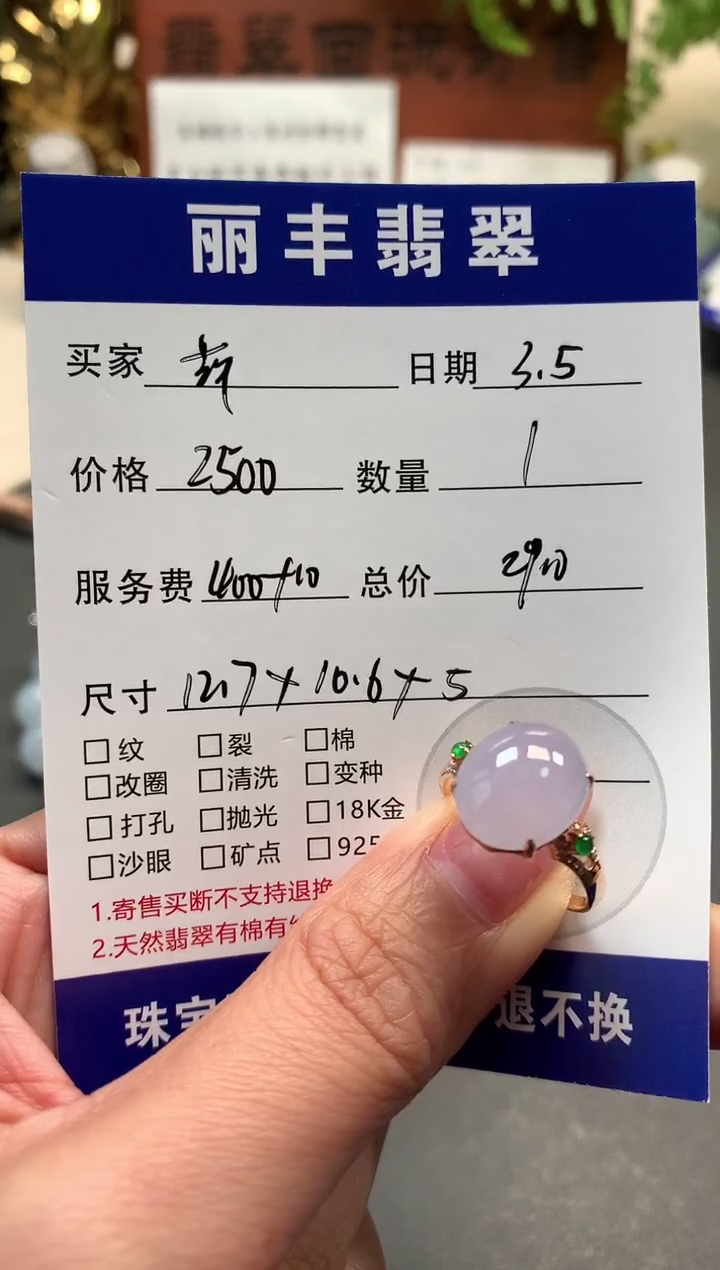 丽丰翡翠
买家 日期 3.5
价格 2500 数量 1
服务费 400+10 总价 2910
尺寸 12.7×10.6×5
□纹 □裂 □棉
□改圈 □清洗 □变种
□打孔 □抛光 □18K金
□沙眼 □矿点 □925
1.寄售买断不支持退换
2.天然翡翠有棉有
珠宝 退不换